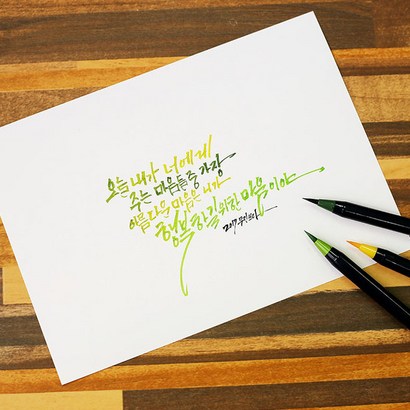 오늘 내가 너에게
주는 마음들중 가장
아름다운 마음은 니가
행복하길 위한 마음이야
2017